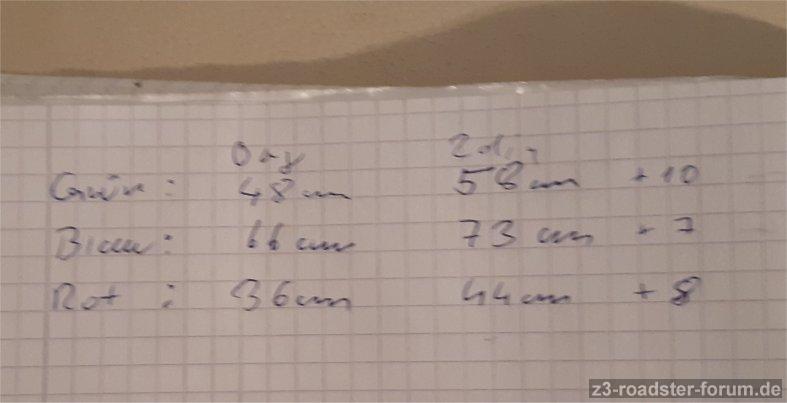 Org 2din
Grün: 48cm 58cm +10
Blau: 66cm 73cm + 7
Rot: 36cm 44cm + 8
z3-roadster-forum.de